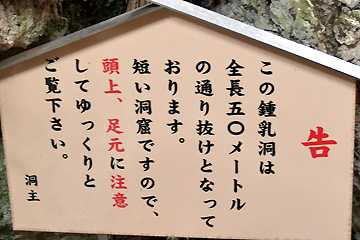 告
この鍾乳洞は
全長五〇メートル
の通り抜けとなって
おります。
短い洞窟ですので、
頭上、足元に注意
してゆっくりと
ご覧下さい。
洞主